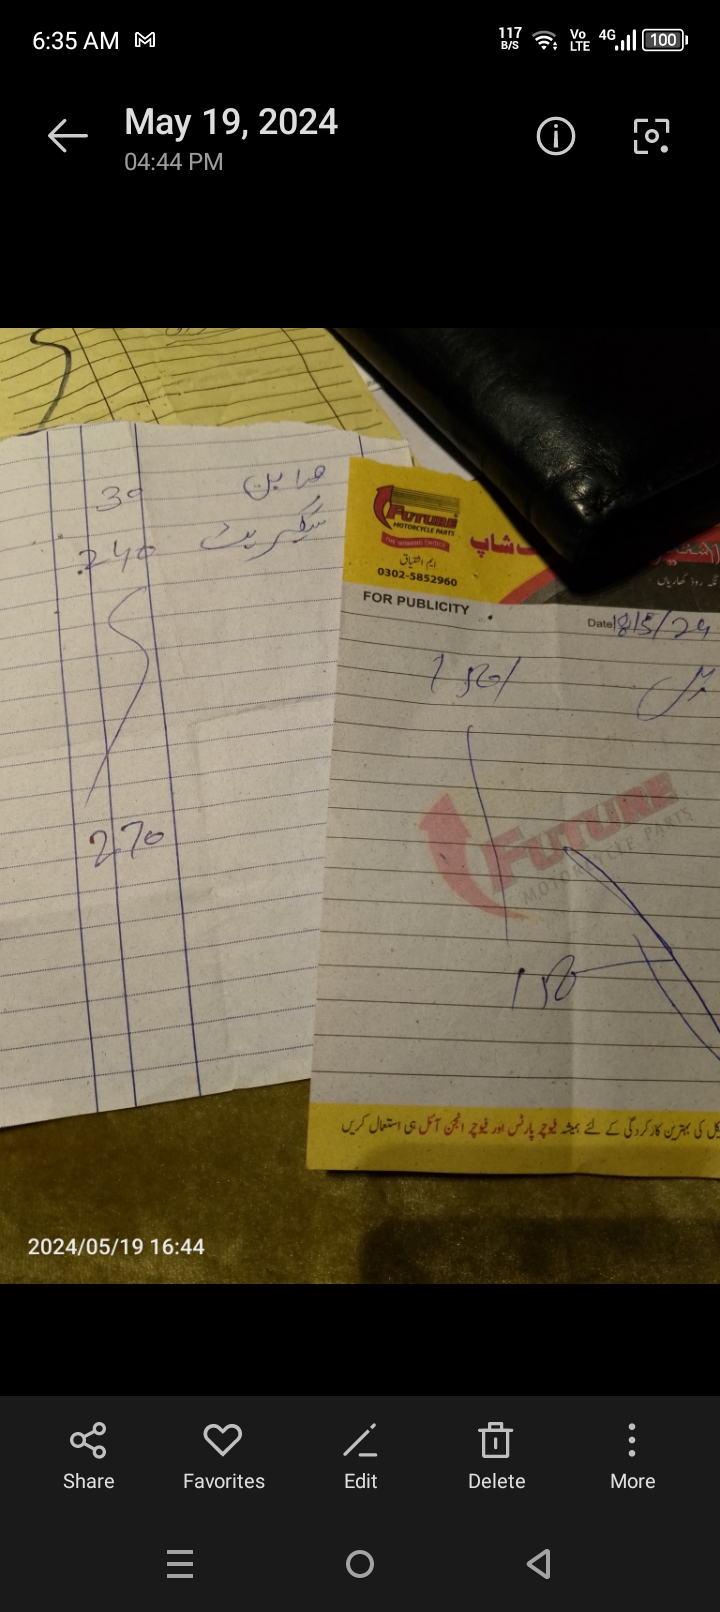 6:35 AM
117 B/S
Vo LTE
4G
100
May 19, 2024
04:44 PM
صابن 30
سیگریٹ 240
270
FUTURE
MOTORCYCLE PARTS
THE WINNING CHOICE
شاپ
ایم اشتیاق
0302-5852960
روڈ کھاریاں
FOR PUBLICITY
Date 18/5/24
150/
FUTURE
MOTORCYCLE PARTS
150
کی بہترین کارکردگی کے لئے ہمیشہ فیوچر پارٹس اور فیوچر انجن آئل ہی استعمال کریں
2024/05/19 16:44
Share
Favorites
Edit
Delete
More